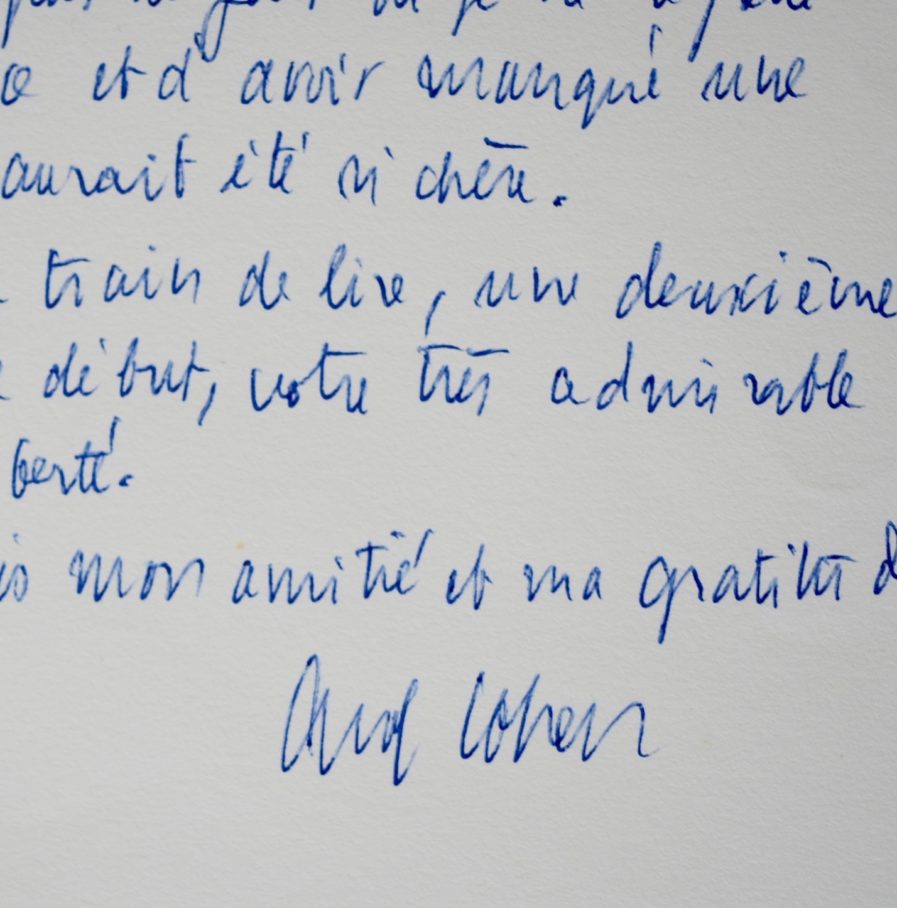 et d'avoir manqué une
aurait été si chère.
train de lire, une deuxième
début, votre très admirable
berté.
mon amitié et ma gratitu
Cohen